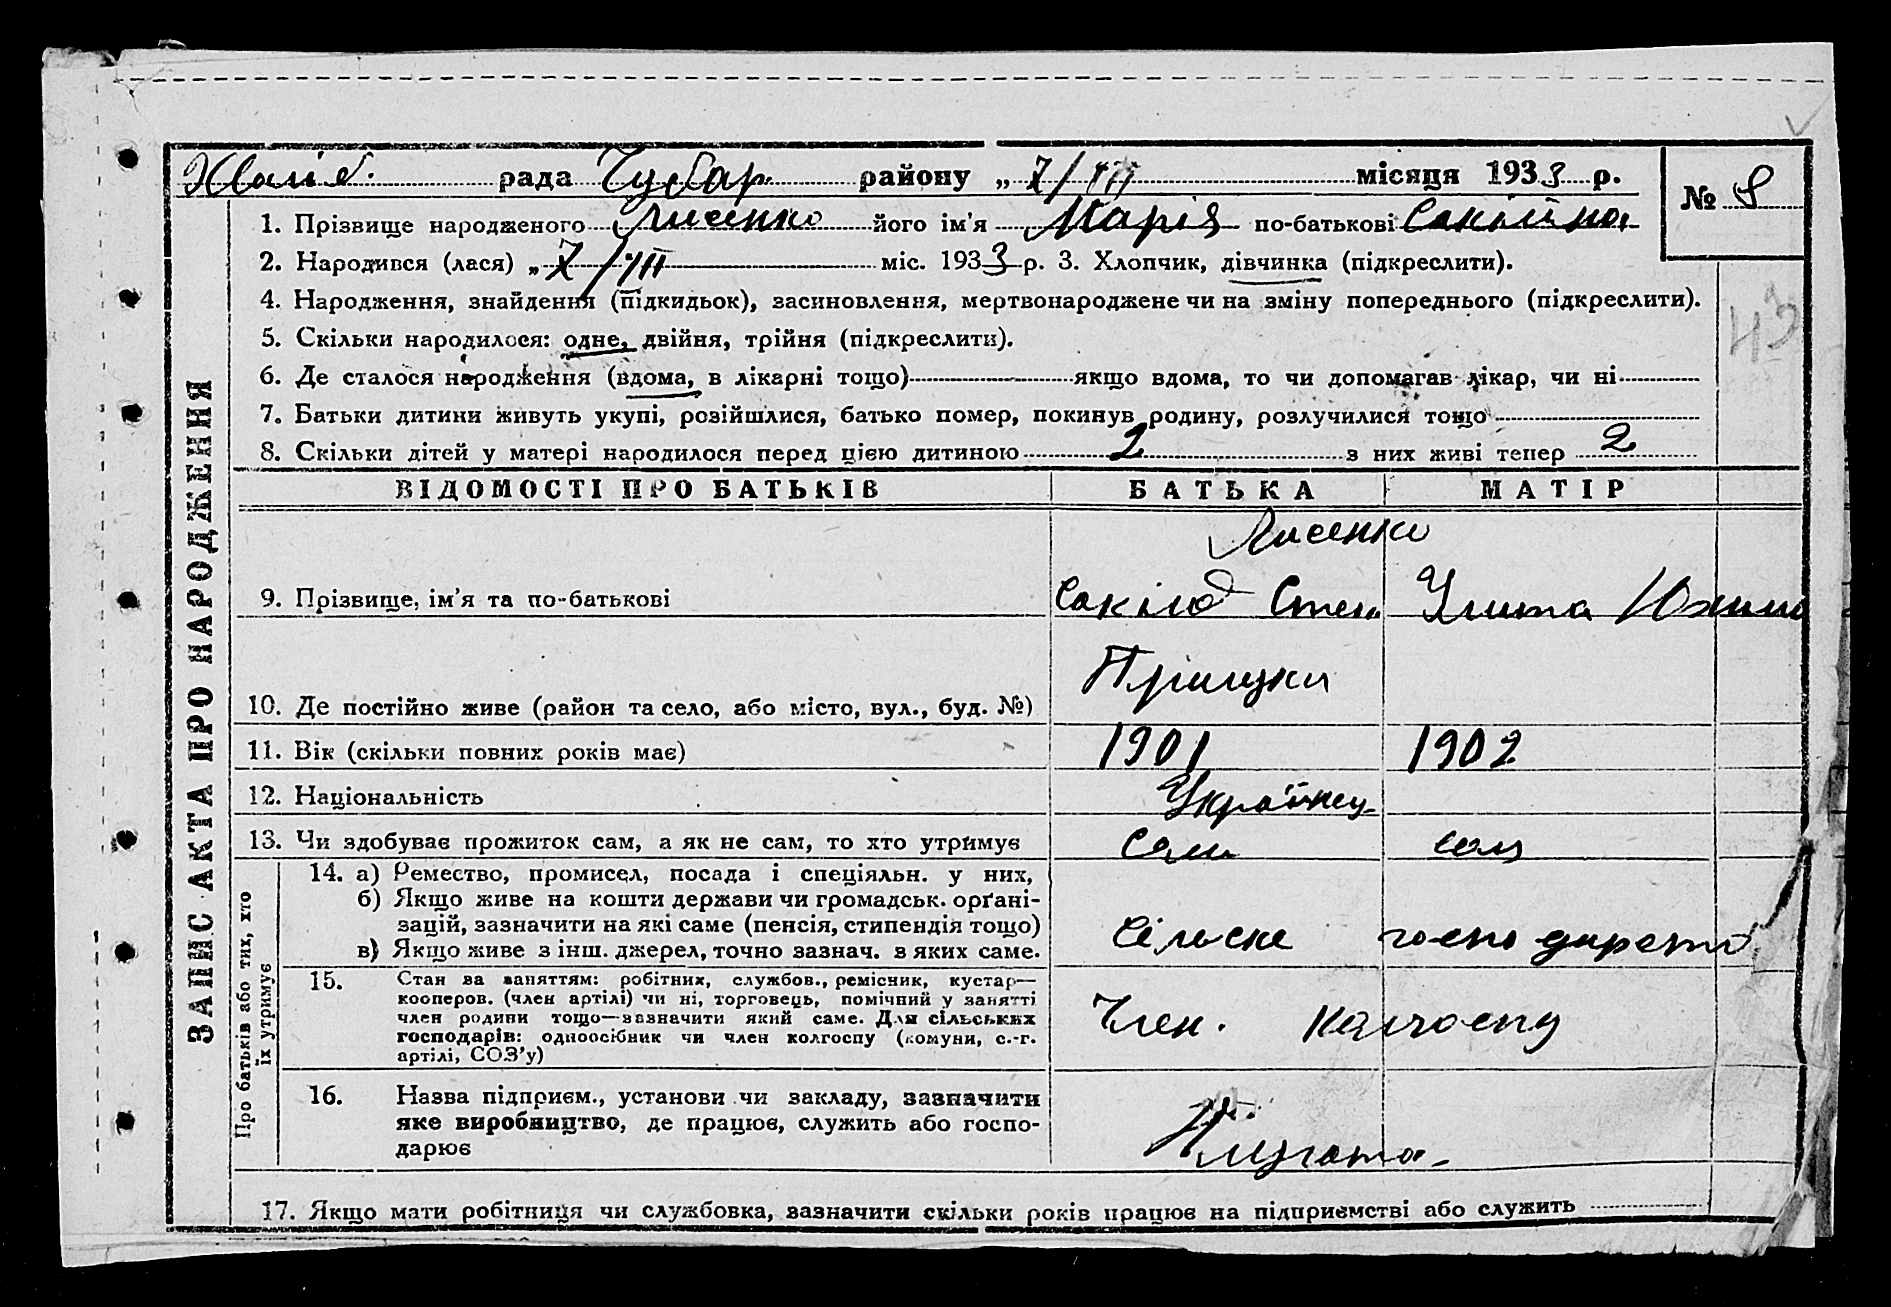 рада Чубар району „ 7/VII місяця 1933 р.
№ 8
1. Прізвище народженого Лисенко його ім’я Марія по-батькові
2. Народився (лася) „ 7/VII міс. 1933 р. 3. Хлопчик, дівчинка (підкреслити).
4. Народження, знайдення (підкидьок), засиновлення, мертвонароджене чи на зміну попереднього (підкреслити).
43
5. Скільки народилося: одне, двійня, трійня (підкреслити).
6. Де сталося народження (вдома, в лікарні тощо) якщо вдома, то чи допомагав лікар, чи ні
7. Батьки дитини живуть укупі, розійшлися, батько помер, покинув родину, розлучилися тощо
8. Скільки дітей у матері народилося перед цією дитиною 2 з них живі тепер 2
ЗАПИС АКТА ПРО НАРОДЖЕННЯ
ВІДОМОСТІ ПРО БАТЬКІВ БАТЬКА МАТІР
Лисенко
9. Прізвище, ім’я та по-батькові Степ Улита Юхим
10. Де постійно живе (район та село, або місто, вул., буд. №)
11. Вік (скільки повних років має) 1901 1902
12. Національність Українец
13. Чи здобуває прожиток сам, а як не сам, то хто утримує Сам сам
Про батьків або тих, хто їх утримує
14. а) Ремество, промисел, посада і спеціяльн. у них,
б) Якщо живе на кошти держави чи громадськ. орґані-
зацій, зазначити на які саме (пенсія, стипендія тощо) Сільске господарство
в) Якщо живе з інш. джерел, точно зазнач. з яких саме.
15. Стан за заняттям: робітник, службов., ремісник, кустар—
кооперов. (член артілі) чи ні, торговець, помічний у занятті
член родини тощо—зазначити який саме. Для сільських Член. колгоспу
господарів: одноосібник чи член колгоспу (комуни, с.-г.
артілі, СОЗ’у)
16. Назва підприєм., установи чи закладу, зазначити
яке виробництво, де працює, служить або госпо-
дарює
17. Якщо мати робітниця чи службовка, зазначити скільки років працює на підприємстві або служить